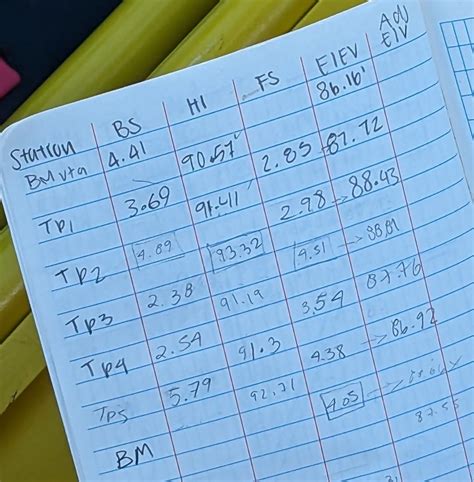 Station BS HI FS ELEV Adj Elv
BM vta 4.41 90.57' 86.16'
TP1 3.69 91.41 2.85 87.72
TP2 4.89 93.32 2.98 88.43
TP3 2.38 91.19 4.51 88.81
TP4 2.54 91.3 3.54 87.76
TP5 5.79 92.71 4.38 86.92
BM 4.05